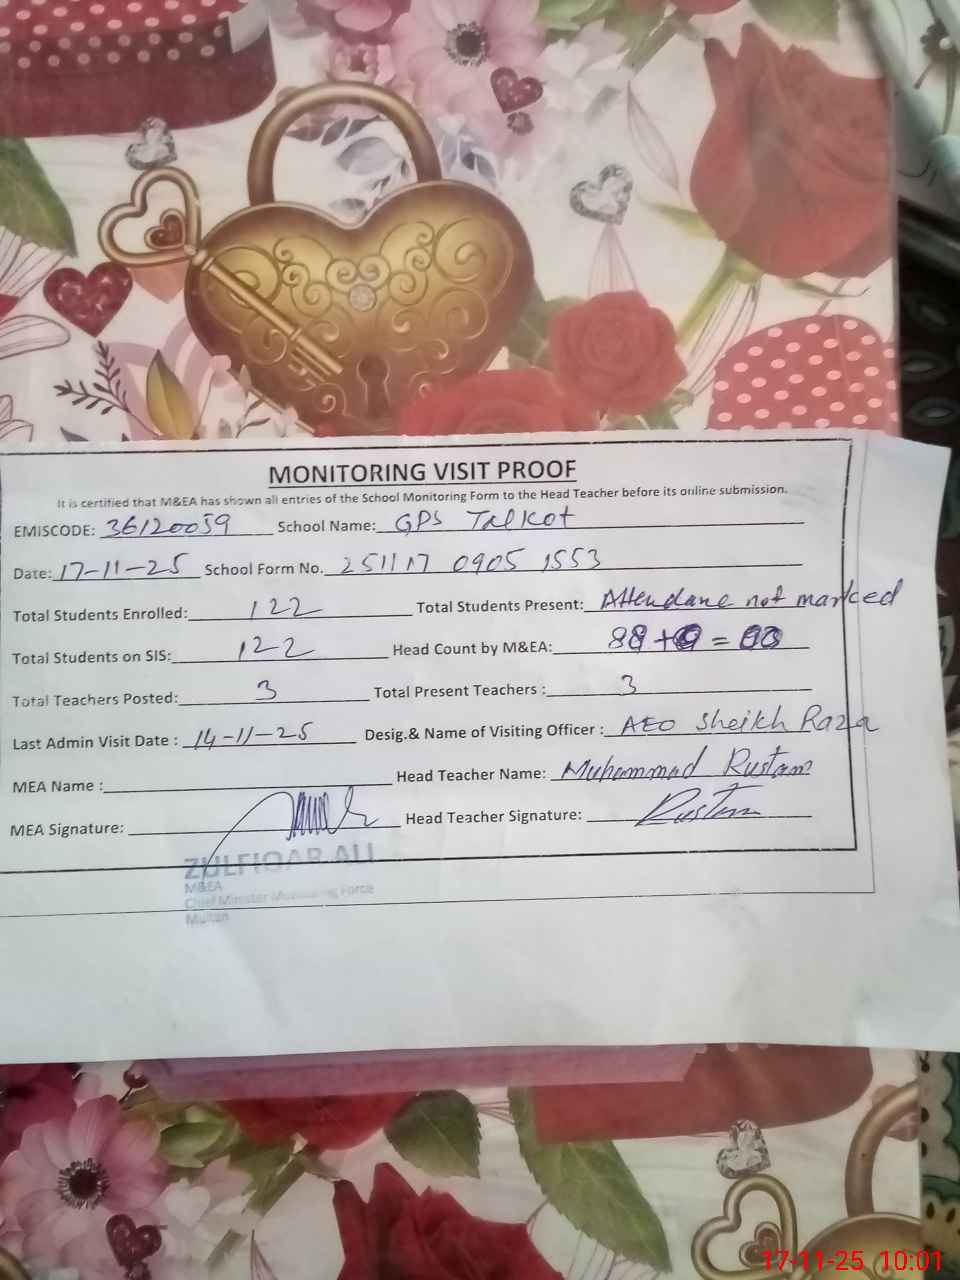 MONITORING VISIT PROOF
It is certified that M&EA has shown all entries of the School Monitoring Form to the Head Teacher before its online submission.
EMISCODE: 36120059 School Name: GPS Talkot
Date: 17-11-25 School Form No. 251117 0905 1553
Total Students Enrolled: 122 Total Students Present: Attendane not marked
Total Students on SIS: 122 Head Count by M&EA: + =
Total Teachers Posted: 3 Total Present Teachers : 3
Last Admin Visit Date : 14-11-25 Desig.& Name of Visiting Officer : AEO Sheikh Raza
MEA Name : Head Teacher Name: Muhammad Rustam
MEA Signature: Head Teacher Signature: Rustam
ZULFIQAR ALI
M&EA
Chief Minister Monitoring Force
Multan
17-11-25 10:01